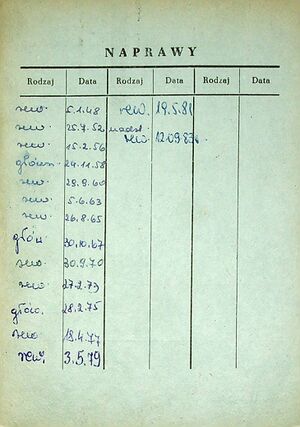 NAPRAWY
Rodzaj Data Rodzaj Data Rodzaj Data
rew. 5.1.48 rew. 19.5.81
rew. 25.7.52 nadzw.
rew. 15.2.56 rew. 12.09.83
główn. 24.11.58
rew. 29.9.60
rew. 5.6.63
rew. 26.8.65
głów. 30.10.67
rew. 30.9.70
rew. 27.2.73
głów. 28.2.75
rew. 18.4.77
rew. 3.5.79